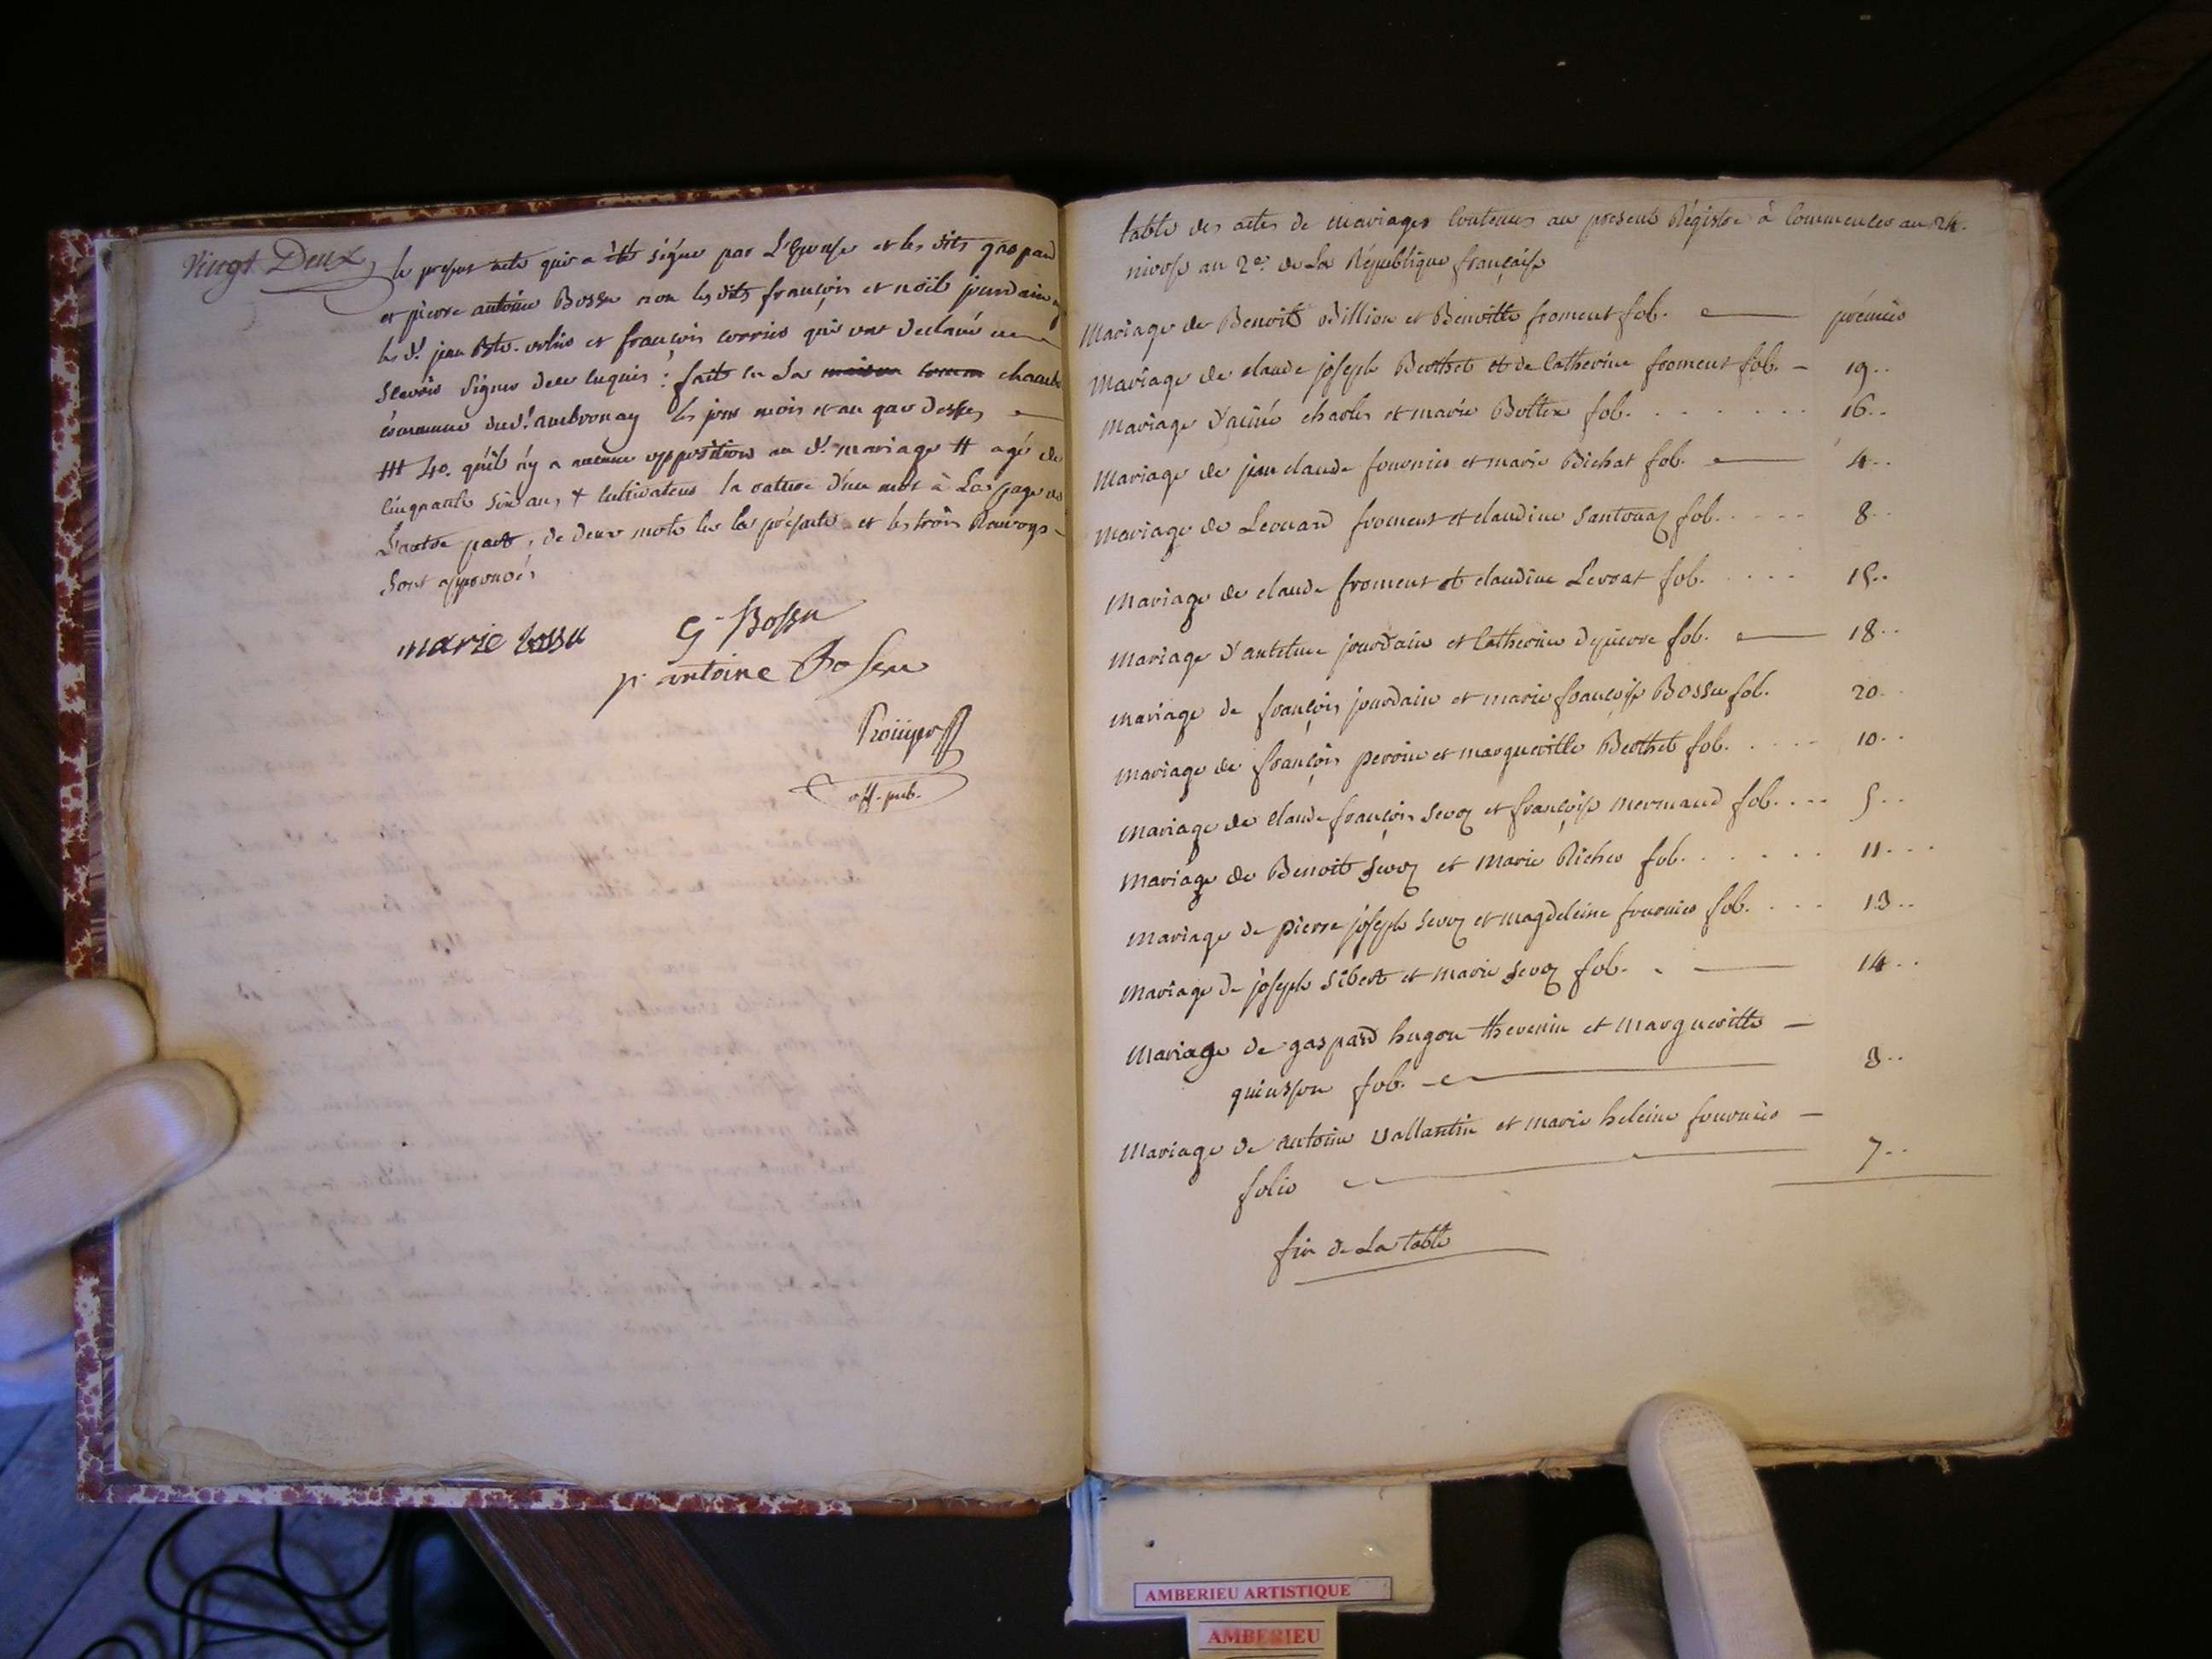 Vingt Deux
le present acte qui a été signé par L'Epouse et les dits gaspard
et pierre antoine Bossu non les dits françois et noël jourdain
les d. jean Bte. et françois qui ont declaré ne
scavoir signer de ce enquis : fait en La maison comm chambre
commune dud. ambronay les jour mois et an que dessus
4o. qu'il n'y a aucune opposition au d. mariage # agé de
cinquante six ans, + cultivateur la rature d'un mot à La page de
L'autre part, de deux mots sur la présente et les trois Renvoys
sont approuvés
marie bossu
G Bossu
p antoine Bossu
Roüyer
off. pub.
table des actes de mariages Contenus au present Régistre à Commencer au 24.
nivose an 2e. de La République française
Mariage de Benoit Billion et Benoitte froment fol. prémier
Mariage de claude joseph Berthet et de Catherine froment fol. 19..
Mariage d'aimé charles et marie Bottex fol. 16..
Mariage de jean claude fournier et marie Bichat fol. 4..
Mariage de Leonard froment et claudine Santonaz fol. 8..
Mariage de claude froment et claudine Levrat fol. 15..
Mariage d'antelme jourdain et Catherine depierre fol. 18..
Mariage de françois jourdain et marie françoise Bossu fol. 20..
Mariage de françois perrin et margueritte Berthet fol. 10..
Mariage de claude françois Sevoz et françoise mermand fol. 5..
Mariage de Benoit Sevoz et Marie Richer fol. 11...
Mariage de pierre joseph Sevoz et magdeleine fournier fol. 13..
Mariage de joseph Sibert et marie Sevoz fol. 14..
Mariage de gaspard hugon thevenin et Margueritte
quinsson fol. 3..
Mariage de antoine Vallantin et marie heleine fournier
folio 7..
fin de La table
AMBERIEU ARTISTIQUE
AMBERIEU